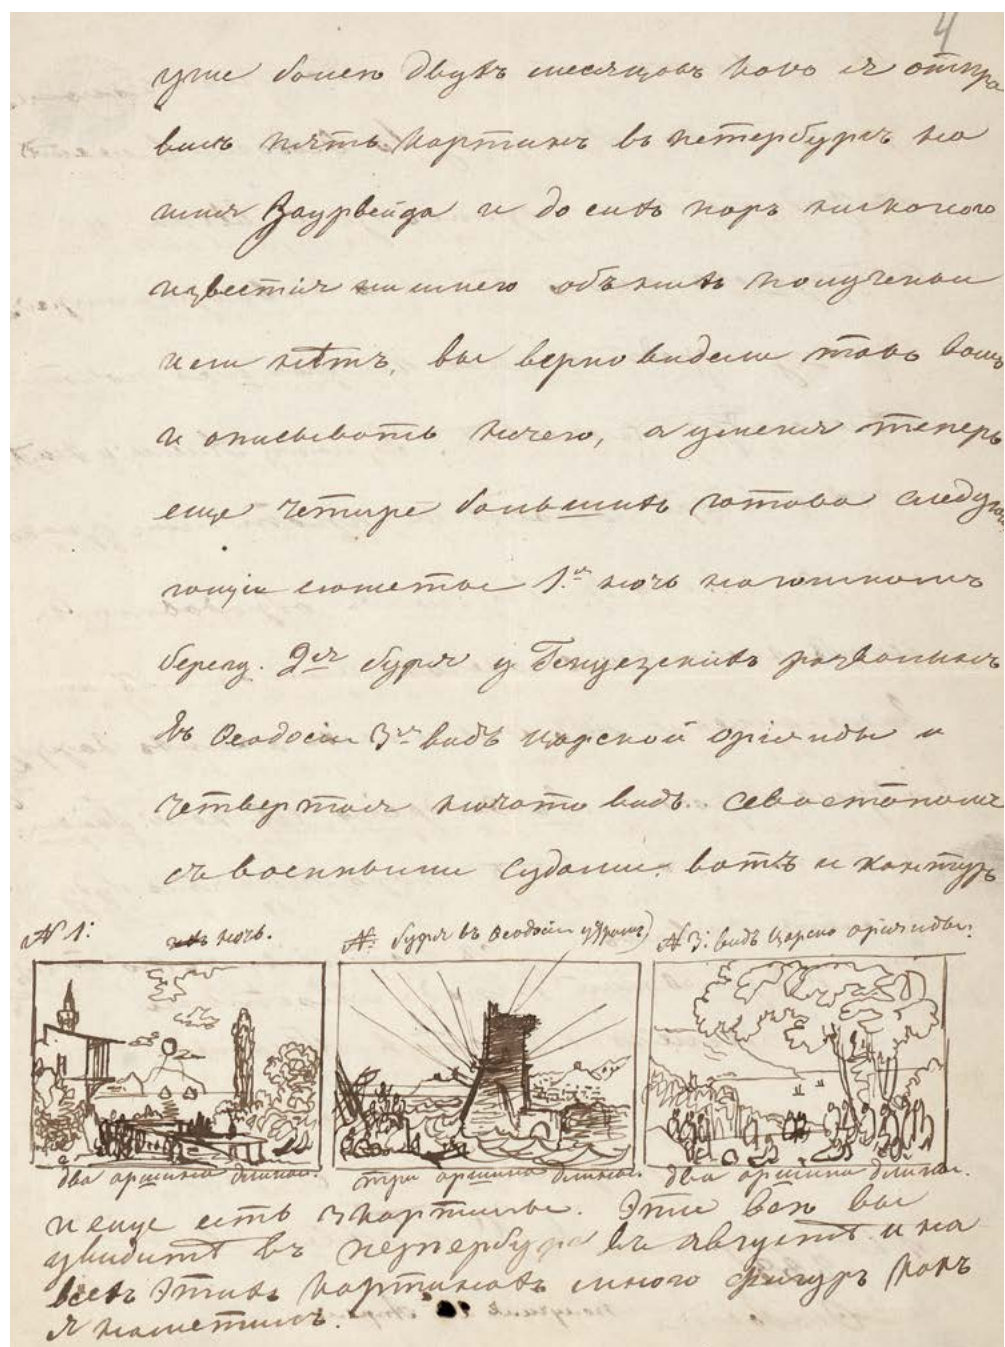 4
уже более двухъ месяцовъ како я отпра
вилъ пять картинъ въ петербургъ на
имя Заурвейда и до сихъ поръ никакого
известія ни
или нѣтъ, вы верно видели тако вамъ
и описывать нечего, а уменя теперь
еще четире большихъ готова следу
ющіи сюжеты 1.я ночь на южномъ
берегу. 2ая буря у Генуезскихъ развалинъ
въ Феодосіи 3я видъ царской оріянды и
четвертая видъ севастополя
съ военными судами. вотъ и контуръ
№ 1: ночь.
№: буря въ Феодосіи
№ 3: видъ царско оріянды.
два аршина длины.
три аршина длины.
два аршина длины.
и еще есть 3 картины. Эти все вы
увидите въ петербурга въ августѣ и на
всехъ этихъ картинахъ много фигуръ какъ
я наметилъ.